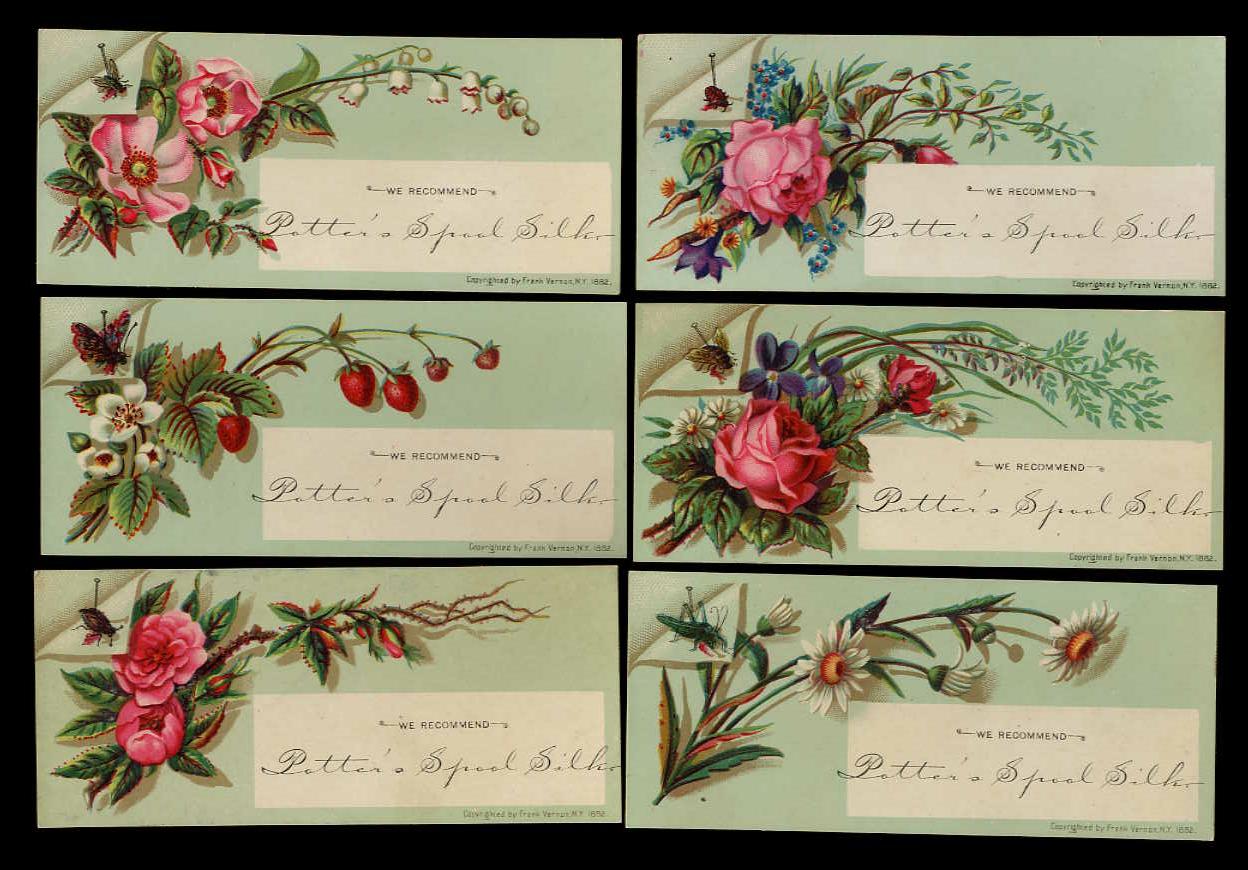 WE RECOMMEND
Potter's Spool Silk
Copyrighted by Frank Vernon, N.Y. 1882.
WE RECOMMEND
Potter's Spool Silk
Copyrighted by Frank Vernon, N.Y. 1882.
WE RECOMMEND
Potter's Spool Silk
Copyrighted by Frank Vernon, N.Y. 1882.
WE RECOMMEND
Potter's Spool Silk
Copyrighted by Frank Vernon, N.Y. 1882.
WE RECOMMEND
Potter's Spool Silk
Copyrighted by Frank Vernon, N.Y. 1882.
WE RECOMMEND
Potter's Spool Silk
Copyrighted by Frank Vernon, N.Y. 1882.